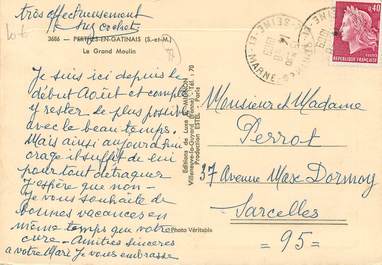 très affectueusement
3686 - PERTHES-EN-GATINAIS (S.-et-M.)
Le Grand Moulin
Je suis ici depuis le
début Août et compte
y rester le plus possible
avec le beau temps.
Mais ainsi aujourd'hui
orage il suffit de lui
pour tout détraquer
J'espère que non -
Je vous souhaite de
bonnes vacances en
même temps que votre
cure - Amitiés sincères
a votre Mari Je vous embrasse
Photo Véritable
Production ESTEL - Paris
0,40
REPUBLIQUE FRANÇAISE
SEINE-ET-MARNE
Monsieur et Madame
Perrot
37 Avenue Max Dormoy
Sarcelles
= 95 =